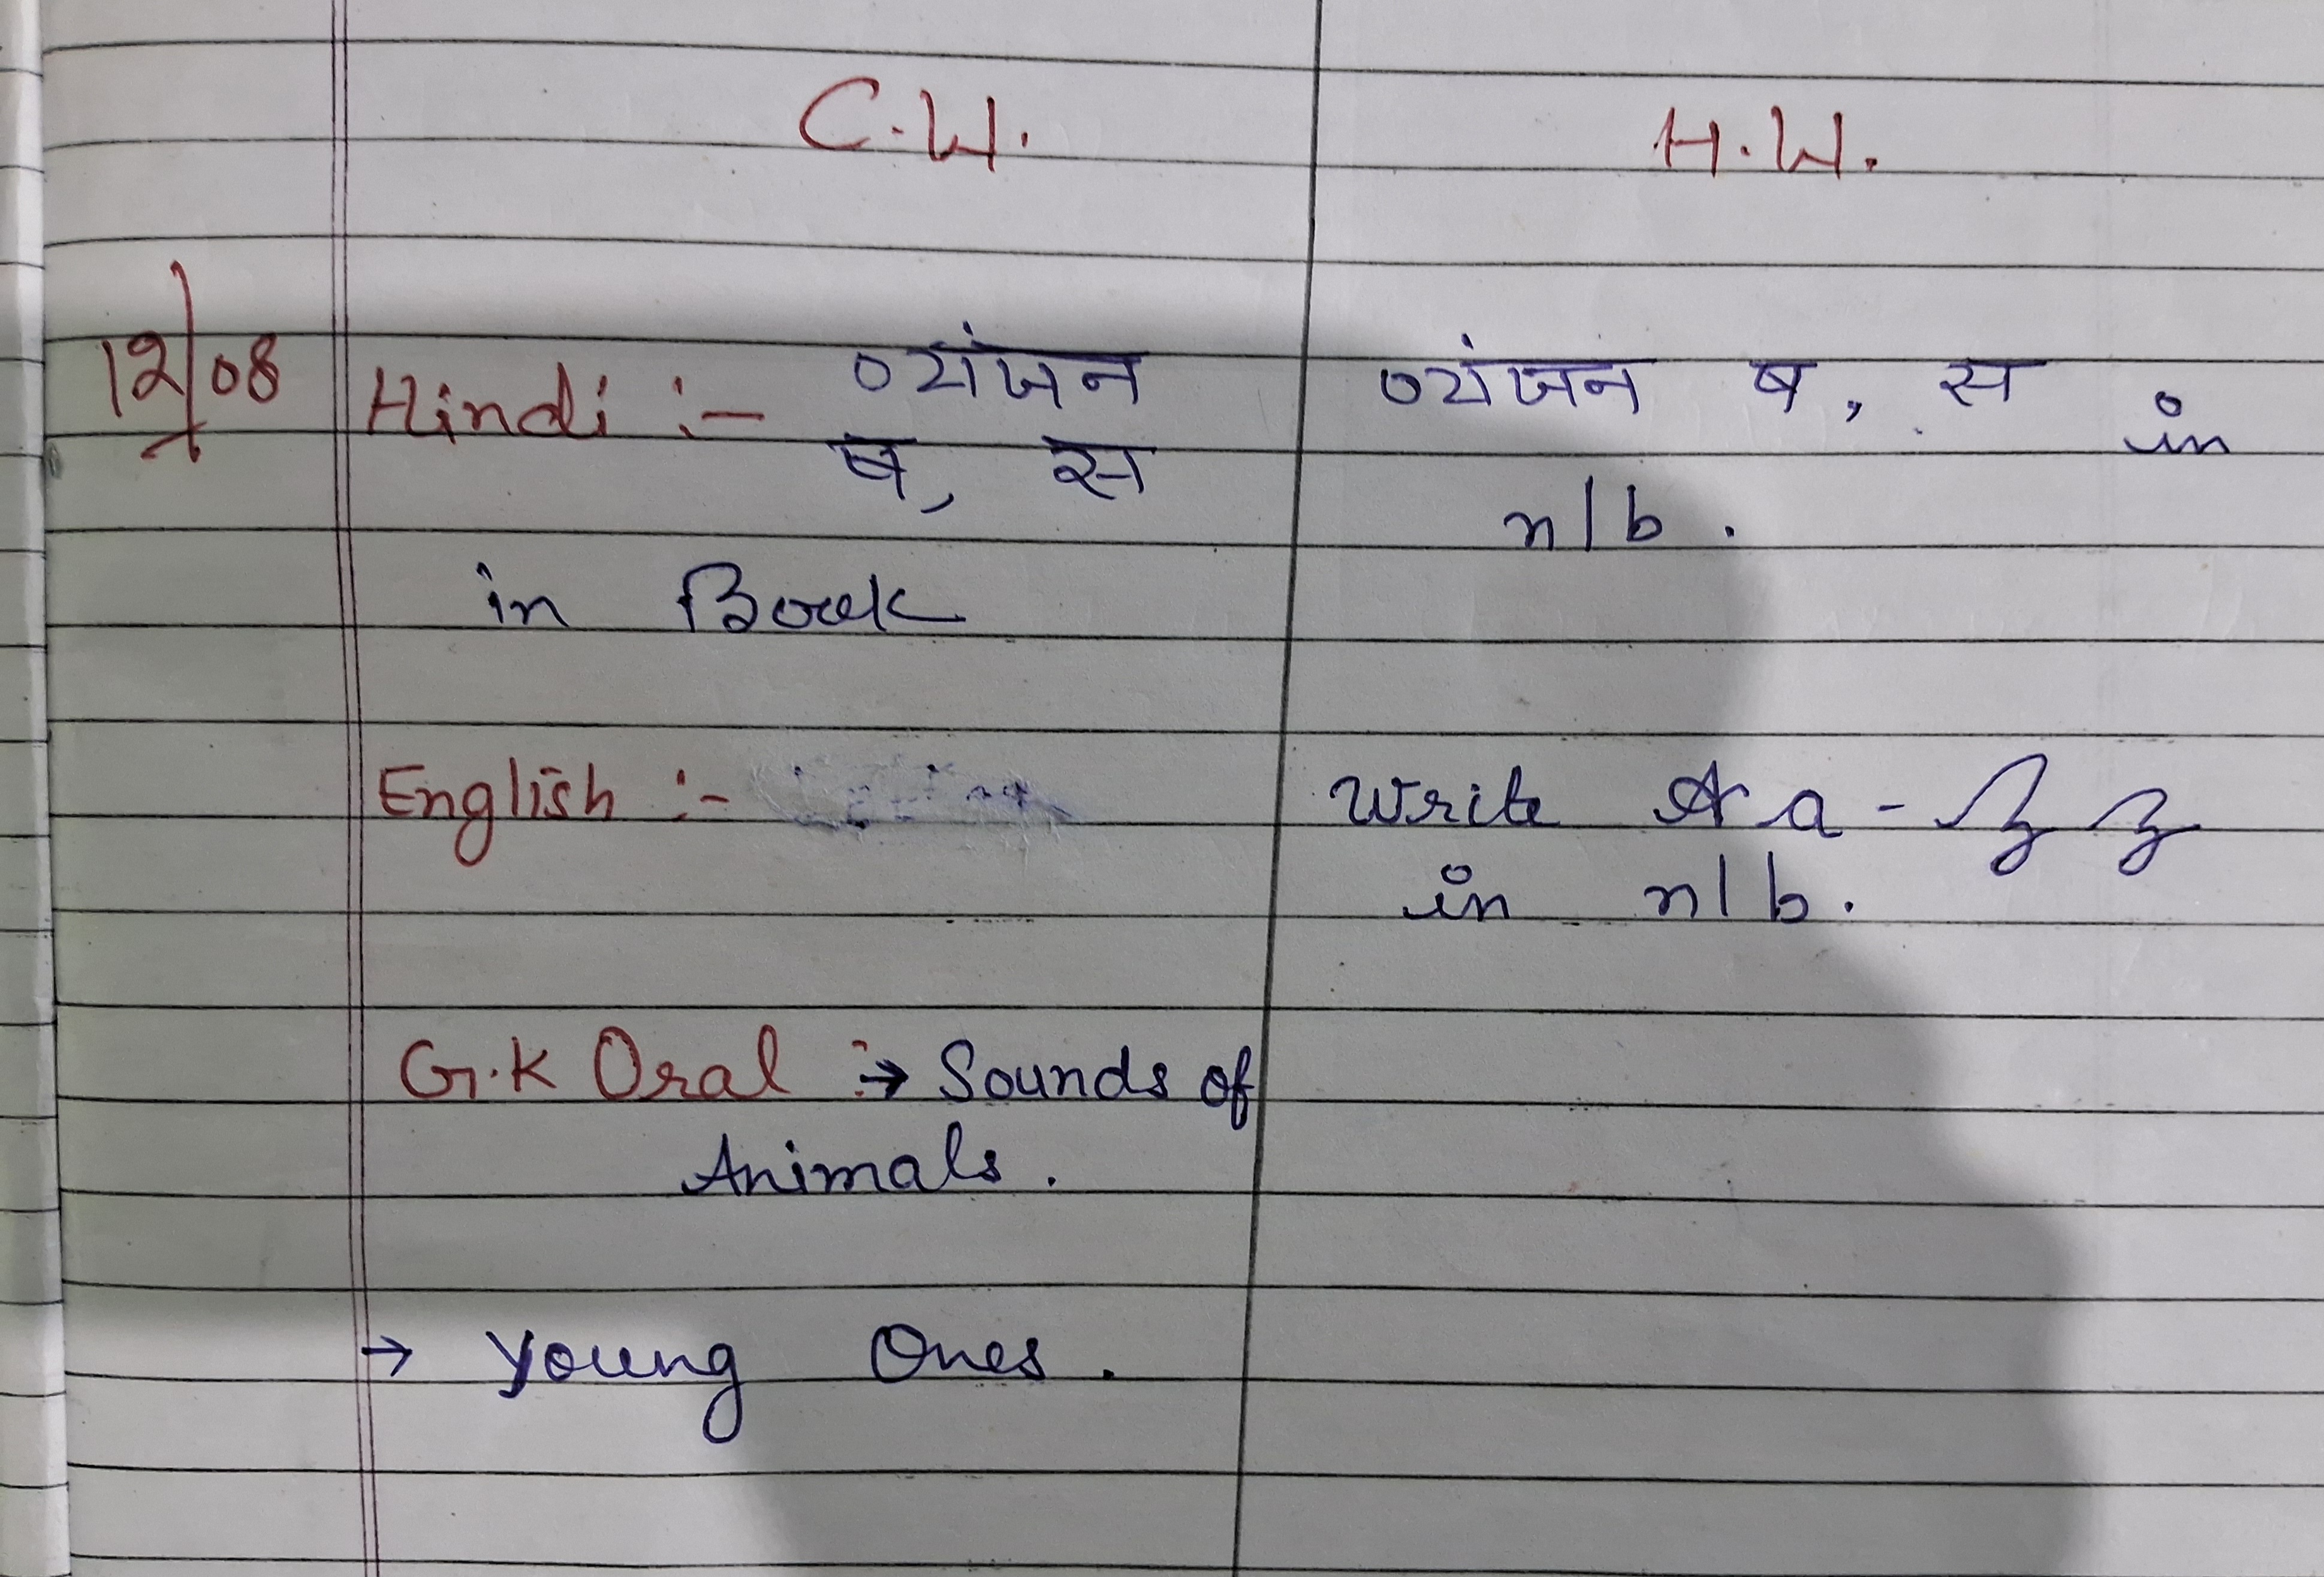 C.W. H.W.
12/08 Hindi :- व्यंजन व्यंजन ष, स in
ष, स n/b.
in Book
English :- Write A a - Z z
in n/b.
G.K Oral :→ Sounds of
Animals.
→ Young Ones.